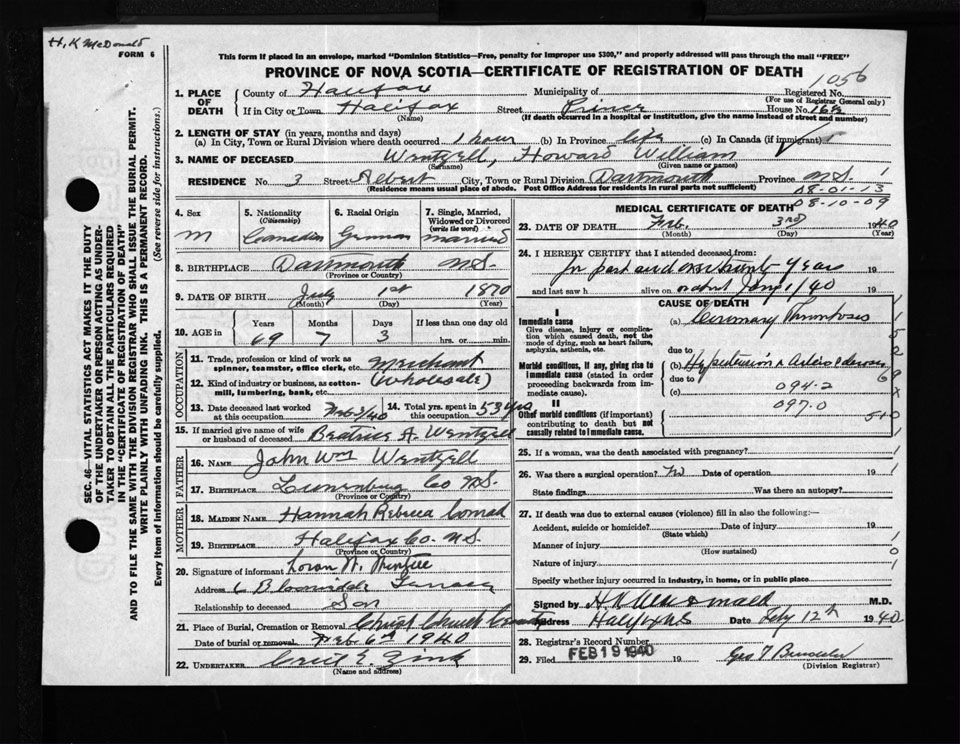 H. K McDonald
FORM 6
This form if placed in an envelope, marked "Dominion Statistics—Free, penalty for improper use $300," and properly addressed will pass through the mail "FREE"
PROVINCE OF NOVA SCOTIA—CERTIFICATE OF REGISTRATION OF DEATH
1056
1. PLACE OF DEATH
County of Halifax Municipality of Registered No.
(For use of Registrar General only)
If in City or Town Halifax Street Prince House No. 168
(Name) (If death occurred in a hospital or institution, give the name instead of street and number)
2. LENGTH OF STAY (in years, months and days)
(a) In City, Town or Rural Division where death occurred 1 hour (b) In Province life (c) In Canada (if immigrant)
3. NAME OF DECEASED Wentzell, Howard William
(Surname) (Given name or names)
RESIDENCE No. 3 Street Albert City, Town or Rural Division Dartmouth Province N.S. 1
(Residence means usual place of abode. Post Office Address for residents in rural parts not sufficient)
08-01-13
08-10-09
4. Sex
M
5. Nationality
(Citizenship)
Canadian
6. Racial Origin
German
7. Single, Married, Widowed or Divorced
(write the word)
married
8. BIRTHPLACE Dartmouth N.S.
(Province or Country)
9. DATE OF BIRTH July 1st 1870
(Month) (Day) (Year)
10. AGE in
Years Months Days If less than one day old
69 7 3 hrs. or min.
OCCUPATION
11. Trade, profession or kind of work as spinner, teamster, office clerk, etc. Merchant
12. Kind of industry or business, as cotton-mill, lumbering, bank, etc. (Wholesale)
13. Date deceased last worked at this occupation Feb 3/40
14. Total yrs. spent in this occupation 53 yrs
15. If married give name of wife or husband of deceased Beatrice A. Wentzell
FATHER
16. NAME John Wm Wentzell
17. BIRTHPLACE Lunenburg Co N.S.
(Province or Country)
MOTHER
18. MAIDEN NAME Hannah Rebecca Conrad
19. BIRTHPLACE Halifax Co. N.S.
(Province or Country)
20. Signature of informant
Address 6 Bloomingdale Terrace
Relationship to deceased Son
21. Place of Burial, Cremation or Removal Christ Church
Date of burial or removal Feb. 6th 1940
22. UNDERTAKER Cecil E. Zink
(Name and address)
MEDICAL CERTIFICATE OF DEATH
23. DATE OF DEATH Feb. 3rd 1940
(Month) (Day) (Year)
24. I HEREBY CERTIFY that I attended deceased from:
for past and over twenty years 19
and last saw h alive on or about Jany 1/40 19
CAUSE OF DEATH
I
Immediate cause
Give disease, injury or complication which caused death, not the mode of dying, such as heart failure, asphyxia, asthenia, etc.
(a) Coronary Thrombosis
due to
Morbid conditions, if any, giving rise to immediate cause (stated in order proceeding backwards from immediate cause).
(b) Hypertension &
due to
(c) 094-2
097.0
II
Other morbid conditions (if important) contributing to death but not causally related to immediate cause.
25. If a woman, was the death associated with pregnancy?
26. Was there a surgical operation? No Date of operation 19
State findings Was there an autopsy?
27. If death was due to external causes (violence) fill in also the following:—
Accident, suicide or homicide? Date of injury 19
(State which)
Manner of injury
(How sustained)
Nature of injury
Specify whether injury occurred in industry, in home, or in public place
Signed by H K McDonald M.D.
Address Halifax NS Date Feby 12th 1940
28. Registrar's Record Number
29. Filed FEB 19 1940 19
(Division Registrar)
SEC. 46—VITAL STATISTICS ACT MAKES IT THE DUTY
OF THE UNDERTAKER OR PERSON ACTING AS UNDER-
TAKER TO OBTAIN ALL THE PARTICULARS REQUIRED
IN THE "CERTIFICATE OF REGISTRATION OF DEATH"
AND TO FILE THE SAME WITH THE DIVISION REGISTRAR WHO SHALL ISSUE THE BURIAL PERMIT.
WRITE PLAINLY WITH UNFADING INK. THIS IS A PERMANENT RECORD.
Every item of information should be carefully supplied. (See reverse side for instructions.)